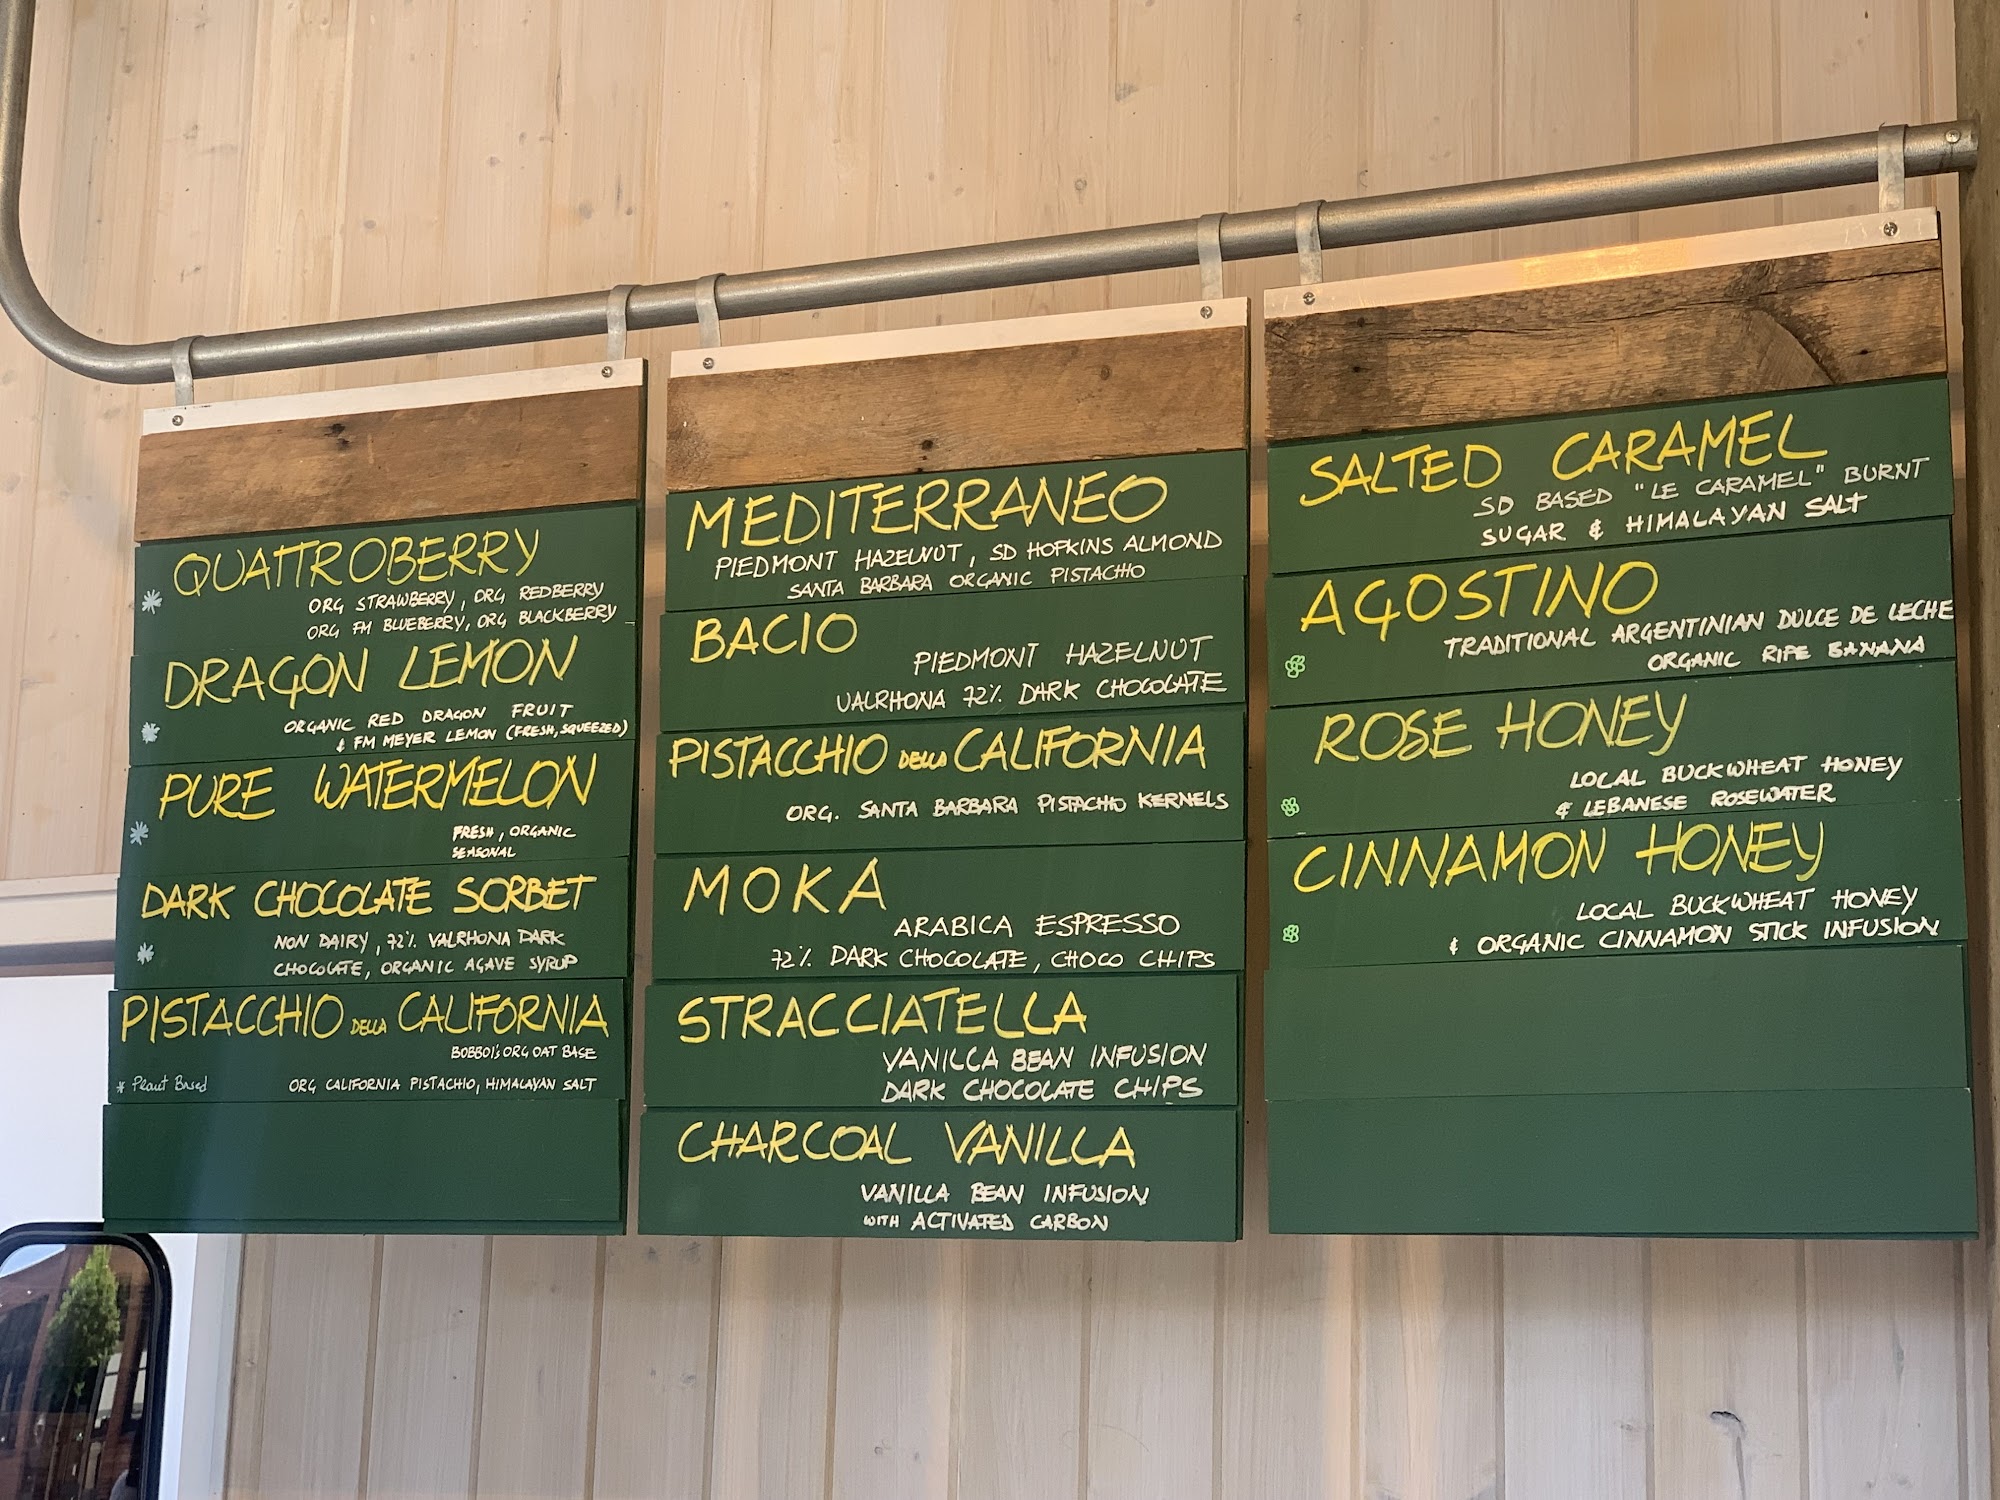 QUATTROBERRY
* ORG STRAWBERRY, ORG REDBERRY
ORG FM BLUEBERRY, ORG BLACKBERRY
DRAGON LEMON
* ORGANIC RED DRAGON FRUIT
& FM MEYER LEMON (FRESH, SQUEEZED)
PURE WATERMELON
* FRESH, ORGANIC
SEASONAL
DARK CHOCOLATE SORBET
* NON DAIRY, 72% VALRHONA DARK
CHOCOLATE, ORGANIC AGAVE SYRUP
PISTACCHIO DELLA CALIFORNIA
BOBBOI'S ORG OAT BASE
* Plant Based ORG CALIFORNIA PISTACHIO, HIMALAYAN SALT
MEDITERRANEO
PIEDMONT HAZELNUT, SD HOPKINS ALMOND
SANTA BARBARA ORGANIC PISTACHIO
BACIO
PIEDMONT HAZELNUT
VALRHONA 72% DARK CHOCOLATE
PISTACCHIO DELLA CALIFORNIA
ORG. SANTA BARBARA PISTACHIO KERNELS
MOKA
ARABICA ESPRESSO
72% DARK CHOCOLATE, CHOCO CHIPS
STRACCIATELLA
VANILLA BEAN INFUSION
DARK CHOCOLATE CHIPS
CHARCOAL VANILLA
VANILLA BEAN INFUSION
WITH ACTIVATED CARBON
SALTED CARAMEL
SD BASED "LE CARAMEL" BURNT
SUGAR & HIMALAYAN SALT
AGOSTINO
TRADITIONAL ARGENTINIAN DULCE DE LECHE
ORGANIC RIPE BANANA
ROSE HONEY
LOCAL BUCKWHEAT HONEY
& LEBANESE ROSEWATER
CINNAMON HONEY
LOCAL BUCKWHEAT HONEY
& ORGANIC CINNAMON STICK INFUSION